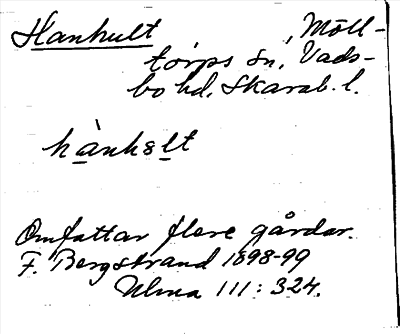 Hanhult, Möll-
torps sn, Vads-
bo hd. Skarab. l.
hànhɛlt
Omfattar flere gårdar.
F. Bergstrand 1898-99
Ulma 111: 324.